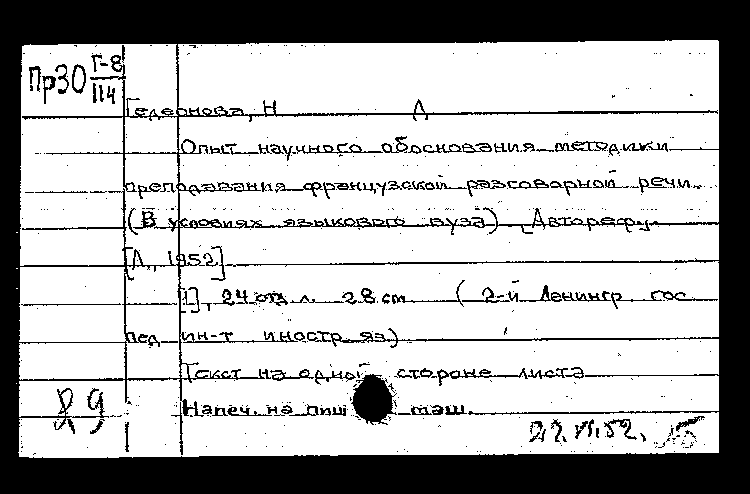 Пр30 Г-8/114
Гедеонова, Н Л
Опыт научного обоснования методики
преподавания французской разговорной речи.
(В условиях языкового вуза) Автореф.
[Л., 1952]
[1], 24 отд. л. 28 см (2-й Ленингр. гос
пед ин-т иностр яз)
Текст на одной стороне листа
Напеч. на пиш маш.
89
22.VI.52.